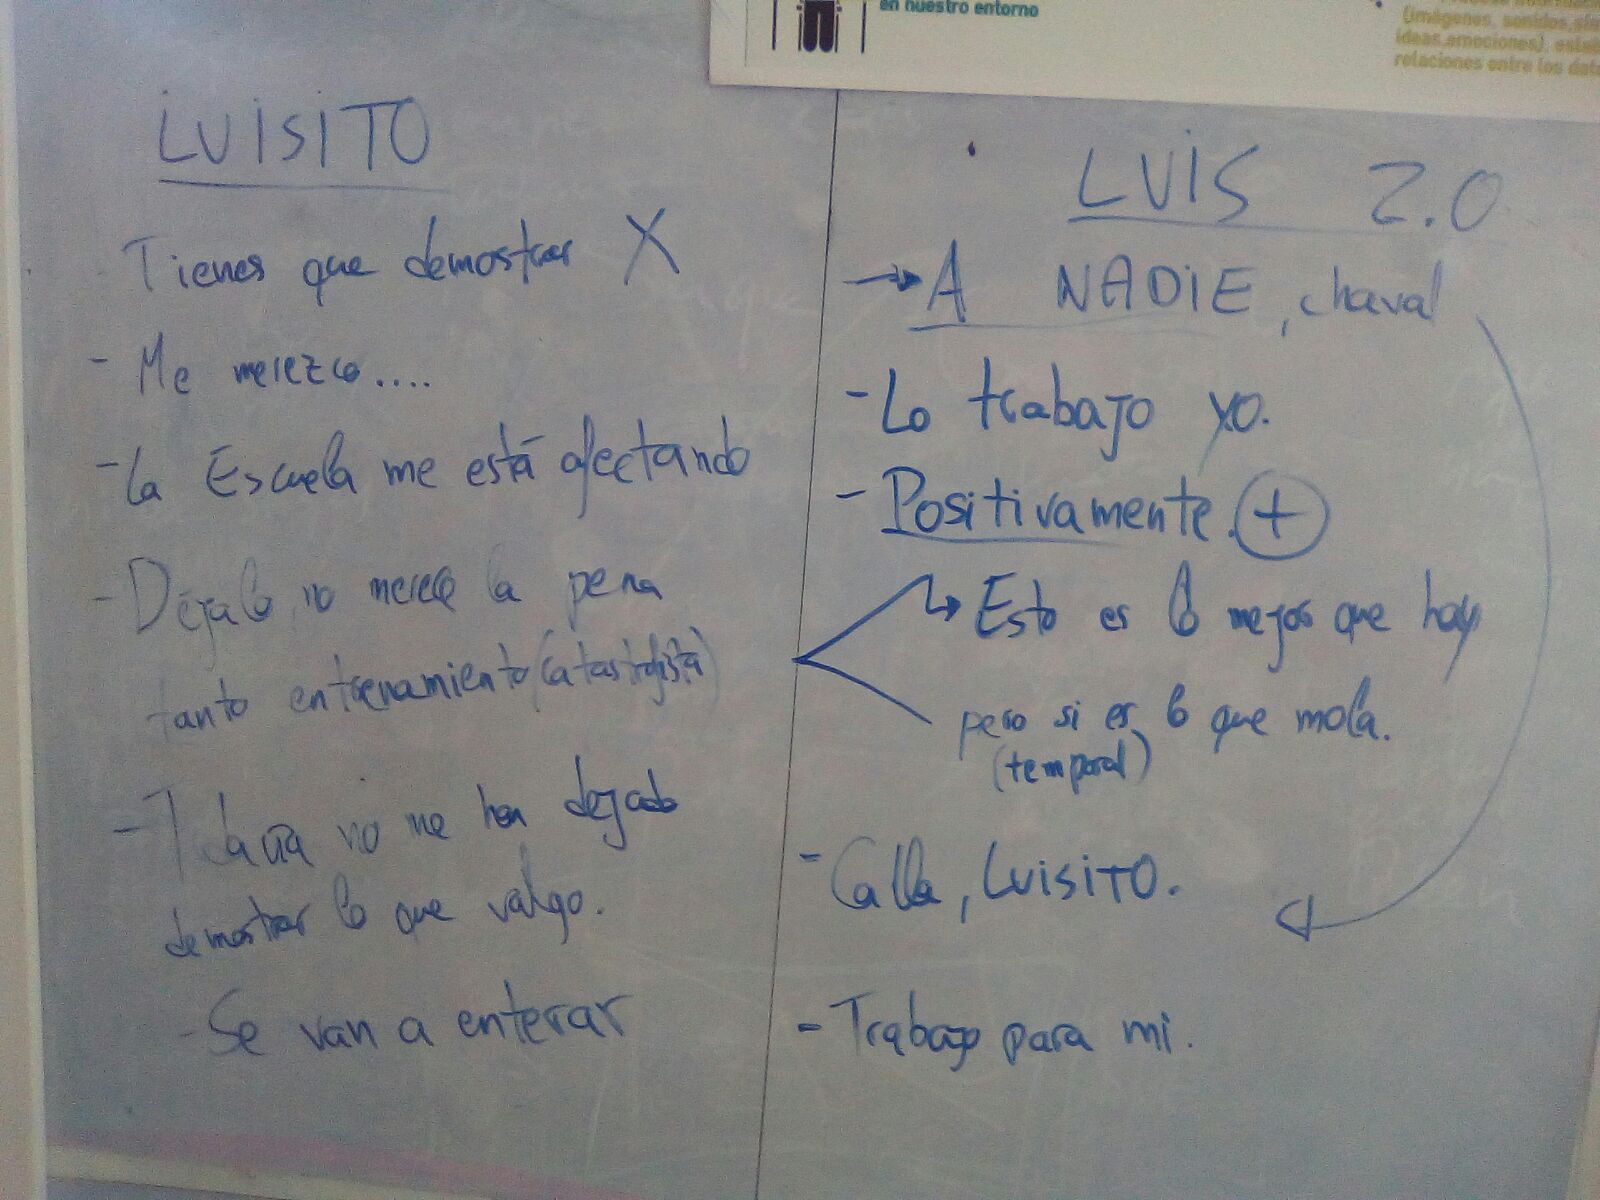 en nuestro entorno
(imágenes, sonidos,
ideas, emociones),
relaciones entre los
LUISITO
Tienes que demostrar X
- Me merezco....
- La Escuela me está afectando
- Déjalo, no merece la pena
tanto entrenamiento (catastrofista)
- Todavía no me han dejado
demostrar lo que valgo.
- Se van a enterar
LUIS 2.0
→ A NADIE, chaval
- Lo trabajo yo.
- Positivamente. +
↳ Esto es lo mejor que hay
pero si es lo que mola.
(temporal)
- Calla, LUISITO.
- Trabajo para mi.